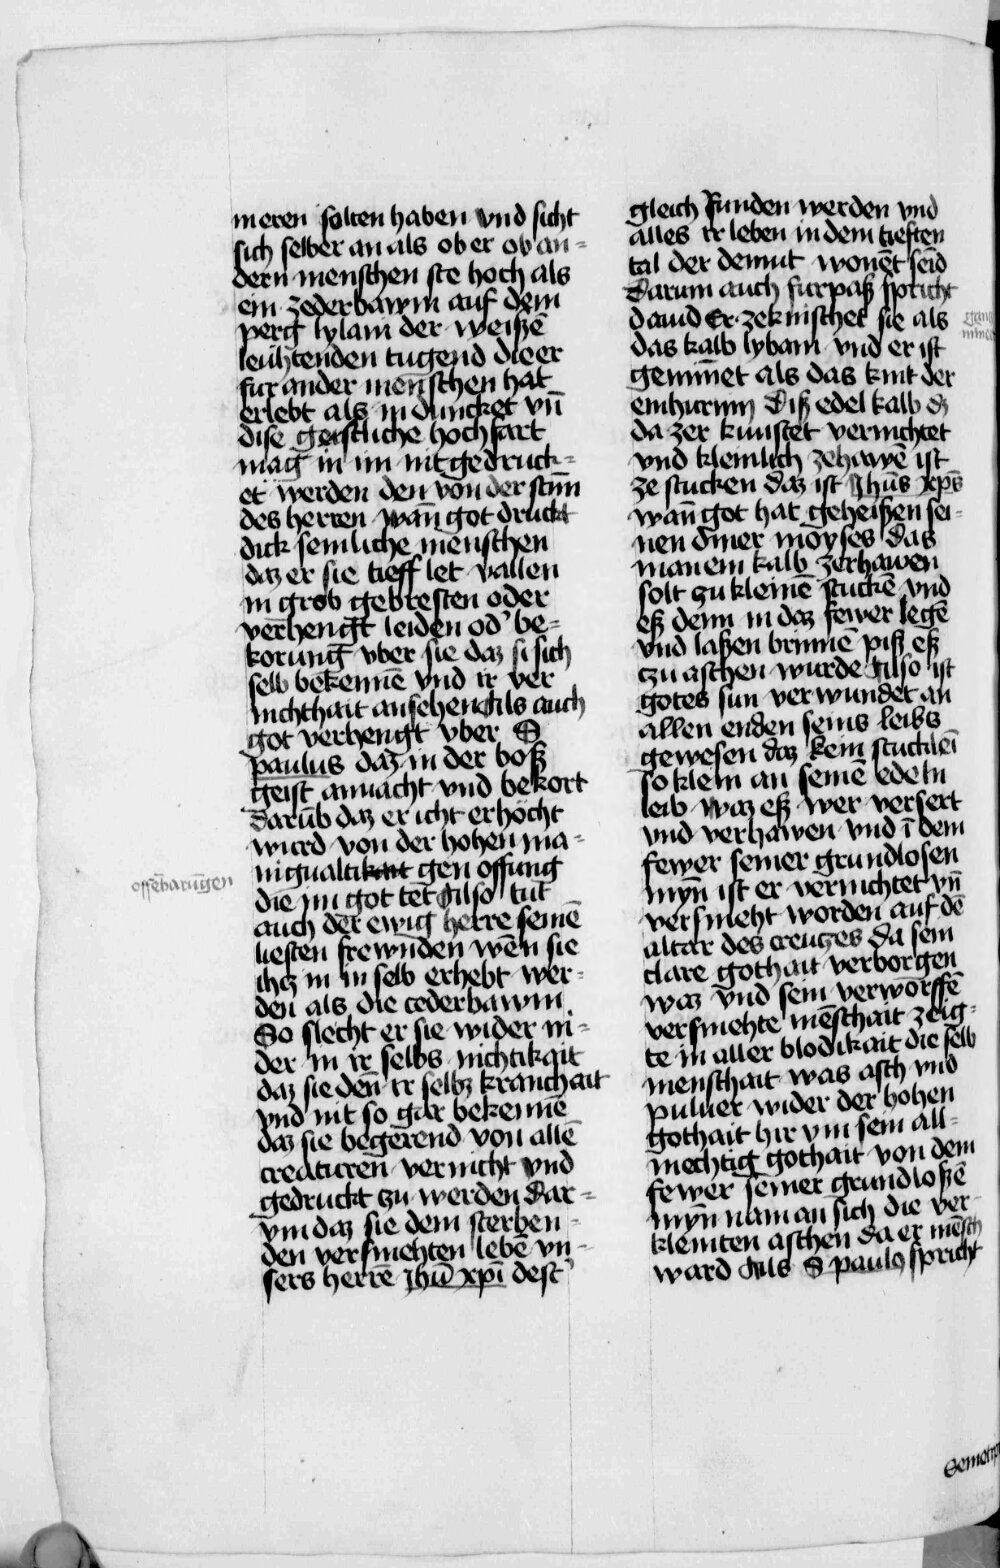 meren solten haben vnd sicht
sich selber an als ob er ob an-
dern menschen ste hoch als
ein zederbawm auf dem
perg lylam der weißē
leuhtenden tugend die er
fur ander menschen hat
erlebt als in duncket vn̄
dise geistliche hochfart
mag in im nit gedruck-
et werden den von der stīm
des herren wan̄ got druckt
dick semliche menschen
daz er sie tieff let vallen
in grob gebresten oder
verhengt leiden od' be-
korung vber sie daz si sich
selb bekennē vnd ir ver
nichthait ansehen Als auch
got verhengt vber S
paulus daz in der boß
geist anuacht vnd bekort
darūb daz er icht erhöcht
wurd von der hohen ma-
nigualtikait gen offung
offēbarūgen
die im got tet Also tut
auch der ewig herre seinē
liesten frewnden wen̄ sie
ihtz in in selb erhebt wer-
den als die cederbawm
So slecht er sie wider ni-
der in ir selbs nichtikait
daz sie den̄ ir selbz kranchait
vnd nit so gar bekennē
daz sie begerend von allē
creaturen vernicht vnd
gedruckt zu werden Dar-
vm daz sie dem sterben-
den versmehten lebē vn-
sers herrē Jhū xp̄i dest'
gleich funden werden vnd
alles ir leben in dem tiefsten
tal der demut wonēt seīd
Darum auch furpaß spricht
dauid Er zeknischet sie als
das kalb lybani vnd er ist
geminnet als das kint der
einhurnn Diß edel kalb dz
da zer kunstet vernichtet
vnd kleinlich zehawē ist
ze stucken daz ist Jhūs xp̄s
wan̄ got hat geheißen sei-
nen diner moyses das
man ein kalb zerhawen
solt zu kleinē stuckē vnd
eß denn in daz fewer legē
vnd laßen brinnē piß eß
zu aschen wurde Also ist
gotes sun verwundet an
allen enden seins leibs
gewesen daz kein stucklei
so klein an seinē edeln
leib waz eß wer versert
vnd verhawen vnd ī dem
fewer seiner grundlosen
myn̄ ist er vernichtet vn̄
versmeht worden auf dē
altar des creutzes da sein
clare gothait verborgen
waz vnd sein verworffē
versmehte mēschait zeig-
te in aller blodikait die selb
menschait was asch vnd
puluer wider der hohen
gothait hir vm sein all-
mechtig gothait von dem
fewer seiner grundloßē
myn̄ nam an sich die ver
kleinten aschen da er mēsch
ward Als S paulꝰ spricht